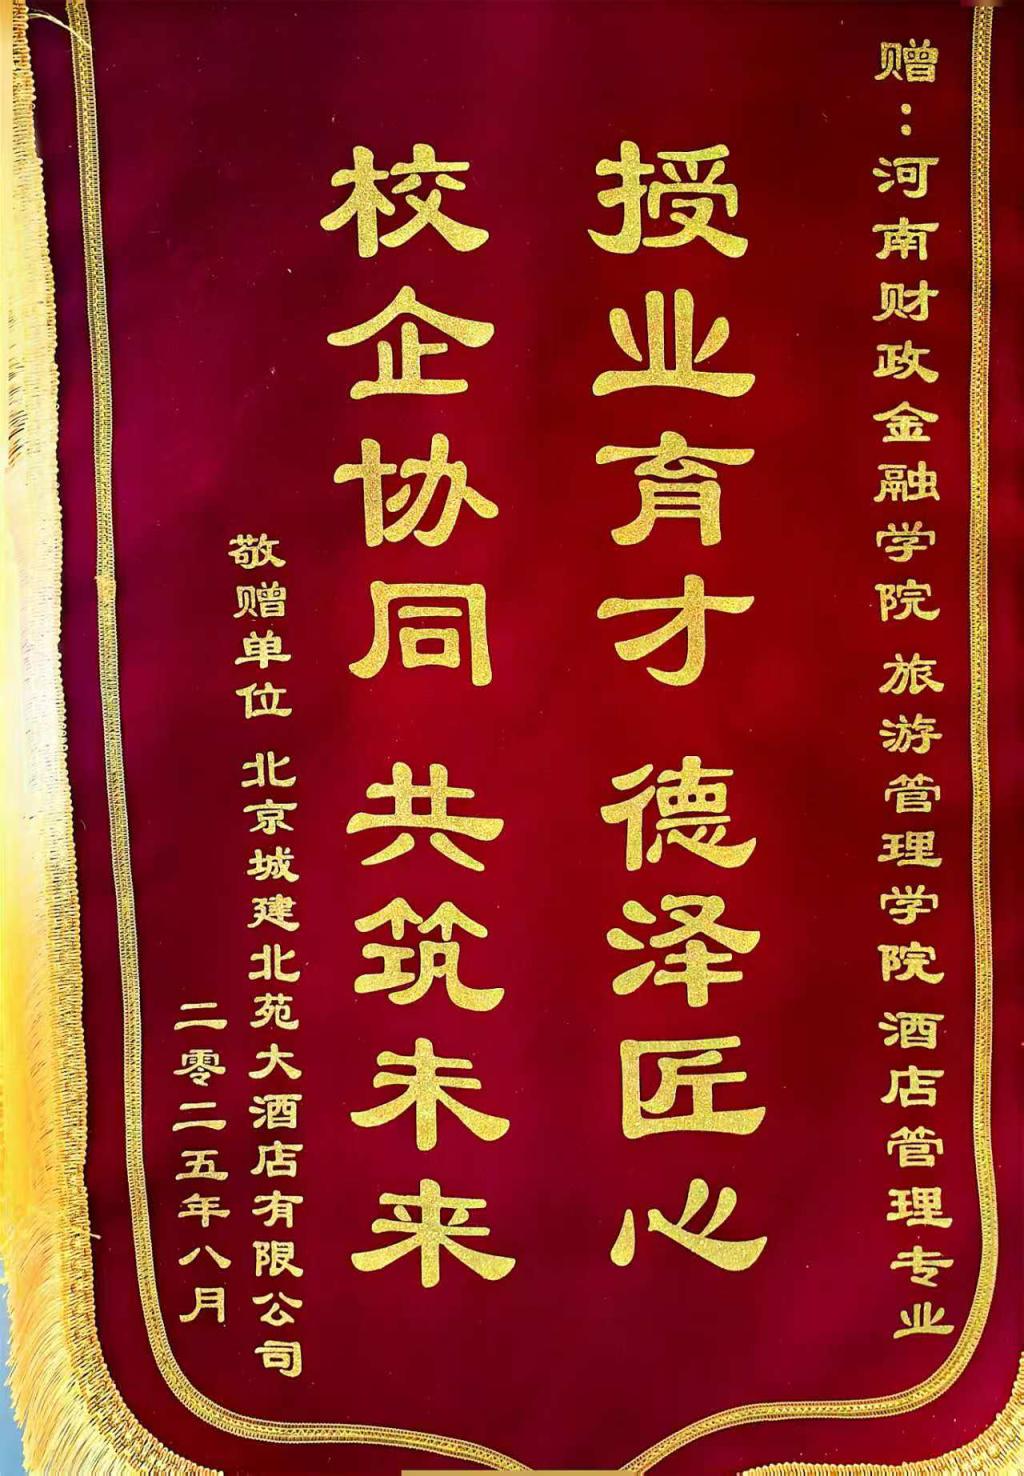 赠：河南财政金融学院 旅游管理学院 酒店管理专业
授业育才 德泽匠心
校企协同 共筑未来
敬赠单位 北京城建北苑大酒店有限公司
二零二五年八月